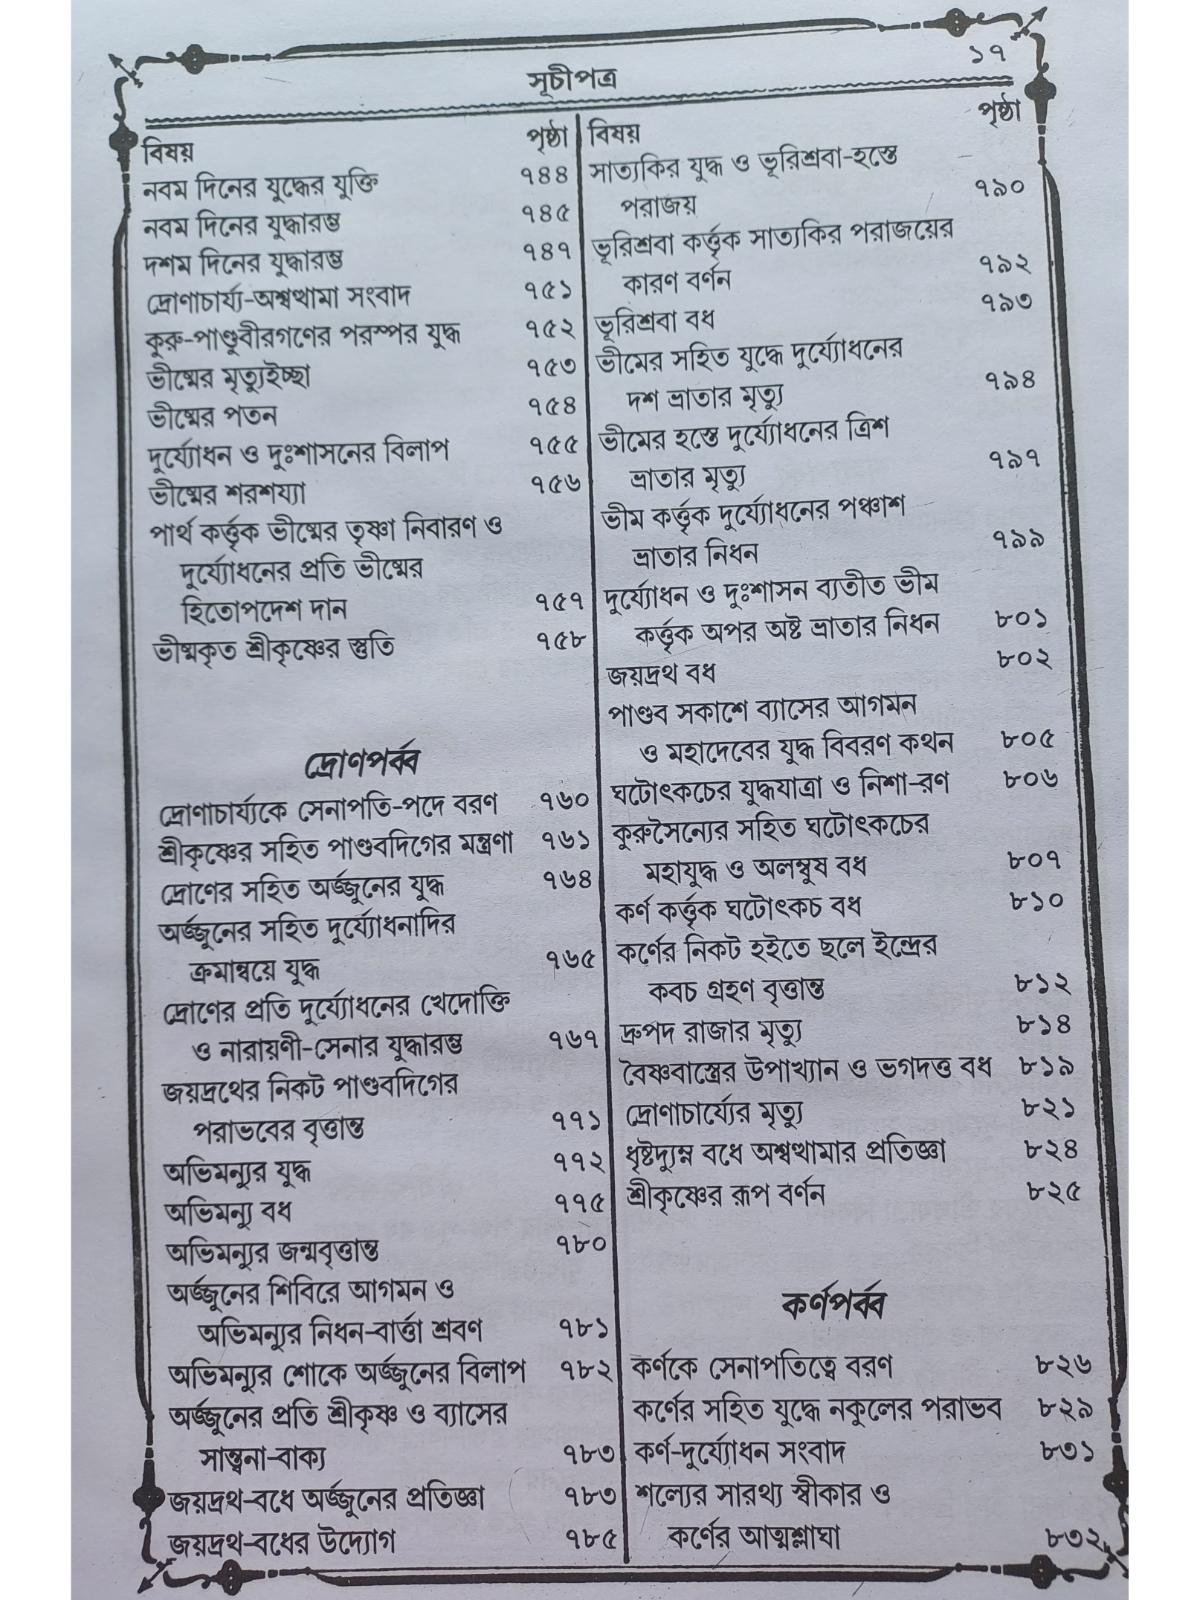 ১৭
সূচীপত্র
বিষয় পৃষ্ঠা
নবম দিনের যুদ্ধের যুক্তি ৭৪৪
নবম দিনের যুদ্ধারম্ভ ৭৪৫
দশম দিনের যুদ্ধারম্ভ ৭৪৭
দ্রোণাচার্য্য-অশ্বত্থামা সংবাদ ৭৫১
কুরু-পাণ্ডুবীরগণের পরস্পর যুদ্ধ ৭৫২
ভীষ্মের মৃত্যুইচ্ছা ৭৫৩
ভীষ্মের পতন ৭৫৪
দুর্য্যোধন ও দুঃশাসনের বিলাপ ৭৫৫
ভীষ্মের শরশয্যা ৭৫৬
পার্থ কর্ত্তৃক ভীষ্মের তৃষ্ণা নিবারণ ও
দুর্য্যোধনের প্রতি ভীষ্মের
হিতোপদেশ দান ৭৫৭
ভীষ্মকৃত শ্রীকৃষ্ণের স্তুতি ৭৫৮
দ্রোণপর্ব্ব
দ্রোণাচার্য্যকে সেনাপতি-পদে বরণ ৭৬০
শ্রীকৃষ্ণের সহিত পাণ্ডবদিগের মন্ত্রণা ৭৬১
দ্রোণের সহিত অর্জ্জুনের যুদ্ধ ৭৬৪
অর্জ্জুনের সহিত দুর্য্যোধনাদির
ক্রমান্বয়ে যুদ্ধ ৭৬৫
দ্রোণের প্রতি দুর্য্যোধনের খেদোক্তি
ও নারায়ণী-সেনার যুদ্ধারম্ভ ৭৬৭
জয়দ্রথের নিকট পাণ্ডবদিগের
পরাভবের বৃত্তান্ত ৭৭১
অভিমন্যুর যুদ্ধ ৭৭২
অভিমন্যু বধ ৭৭৫
অভিমন্যুর জন্মবৃত্তান্ত ৭৮০
অর্জ্জুনের শিবিরে আগমন ও
অভিমন্যুর নিধন-বার্ত্তা শ্রবণ ৭৮১
অভিমন্যুর শোকে অর্জ্জুনের বিলাপ ৭৮২
অর্জ্জুনের প্রতি শ্রীকৃষ্ণ ও ব্যাসের
সান্ত্বনা-বাক্য ৭৮৩
জয়দ্রথ-বধে অর্জ্জুনের প্রতিজ্ঞা ৭৮৩
জয়দ্রথ-বধের উদ্যোগ ৭৮৫
বিষয় পৃষ্ঠা
সাত্যকির যুদ্ধ ও ভূরিশ্রবা-হস্তে
পরাজয় ৭৯০
ভূরিশ্রবা কর্ত্তৃক সাত্যকির পরাজয়ের
কারণ বর্ণন ৭৯২
ভূরিশ্রবা বধ ৭৯৩
ভীমের সহিত যুদ্ধে দুর্য্যোধনের
দশ ভ্রাতার মৃত্যু ৭৯৪
ভীমের হস্তে দুর্য্যোধনের ত্রিশ
ভ্রাতার মৃত্যু ৭৯৭
ভীম কর্ত্তৃক দুর্য্যোধনের পঞ্চাশ
ভ্রাতার নিধন ৭৯৯
দুর্য্যোধন ও দুঃশাসন ব্যতীত ভীম
কর্ত্তৃক অপর অষ্ট ভ্রাতার নিধন ৮০১
জয়দ্রথ বধ ৮০২
পাণ্ডব সকাশে ব্যাসের আগমন
ও মহাদেবের যুদ্ধ বিবরণ কথন ৮০৫
ঘটোৎকচের যুদ্ধযাত্রা ও নিশা-রণ ৮০৬
কুরুসৈন্যের সহিত ঘটোৎকচের
মহাযুদ্ধ ও অলম্বুষ বধ ৮০৭
কর্ণ কর্ত্তৃক ঘটোৎকচ বধ ৮১০
কর্ণের নিকট হইতে ছলে ইন্দ্রের
কবচ গ্রহণ বৃত্তান্ত ৮১২
দ্রুপদ রাজার মৃত্যু ৮১৪
বৈষ্ণবাস্ত্রের উপাখ্যান ও ভগদত্ত বধ ৮১৯
দ্রোণাচার্য্যের মৃত্যু ৮২১
ধৃষ্টদ্যুম্ন বধে অশ্বত্থামার প্রতিজ্ঞা ৮২৪
শ্রীকৃষ্ণের রূপ বর্ণন ৮২৫
কর্ণপর্ব্ব
কর্ণকে সেনাপতিত্বে বরণ ৮২৬
কর্ণের সহিত যুদ্ধে নকুলের পরাভব ৮২৯
কর্ণ-দুর্য্যোধন সংবাদ ৮৩১
শল্যের সারথ্য স্বীকার ও
কর্ণের আত্মশ্লাঘা ৮৩২